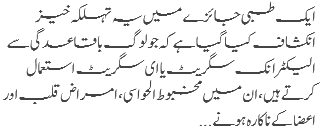 ایک طبی جائزے میں یہ تہلکہ خیز
انکشاف کیا گیا ہے کہ جو لوگ باقاعدگی سے
الیکٹرانک سگریٹ یا ای سگریٹ استعمال
کرتے ہیں، ان میں مخبوط الحواسی، امراض قلب اور
اعضا کے ناکارہ ہونے...